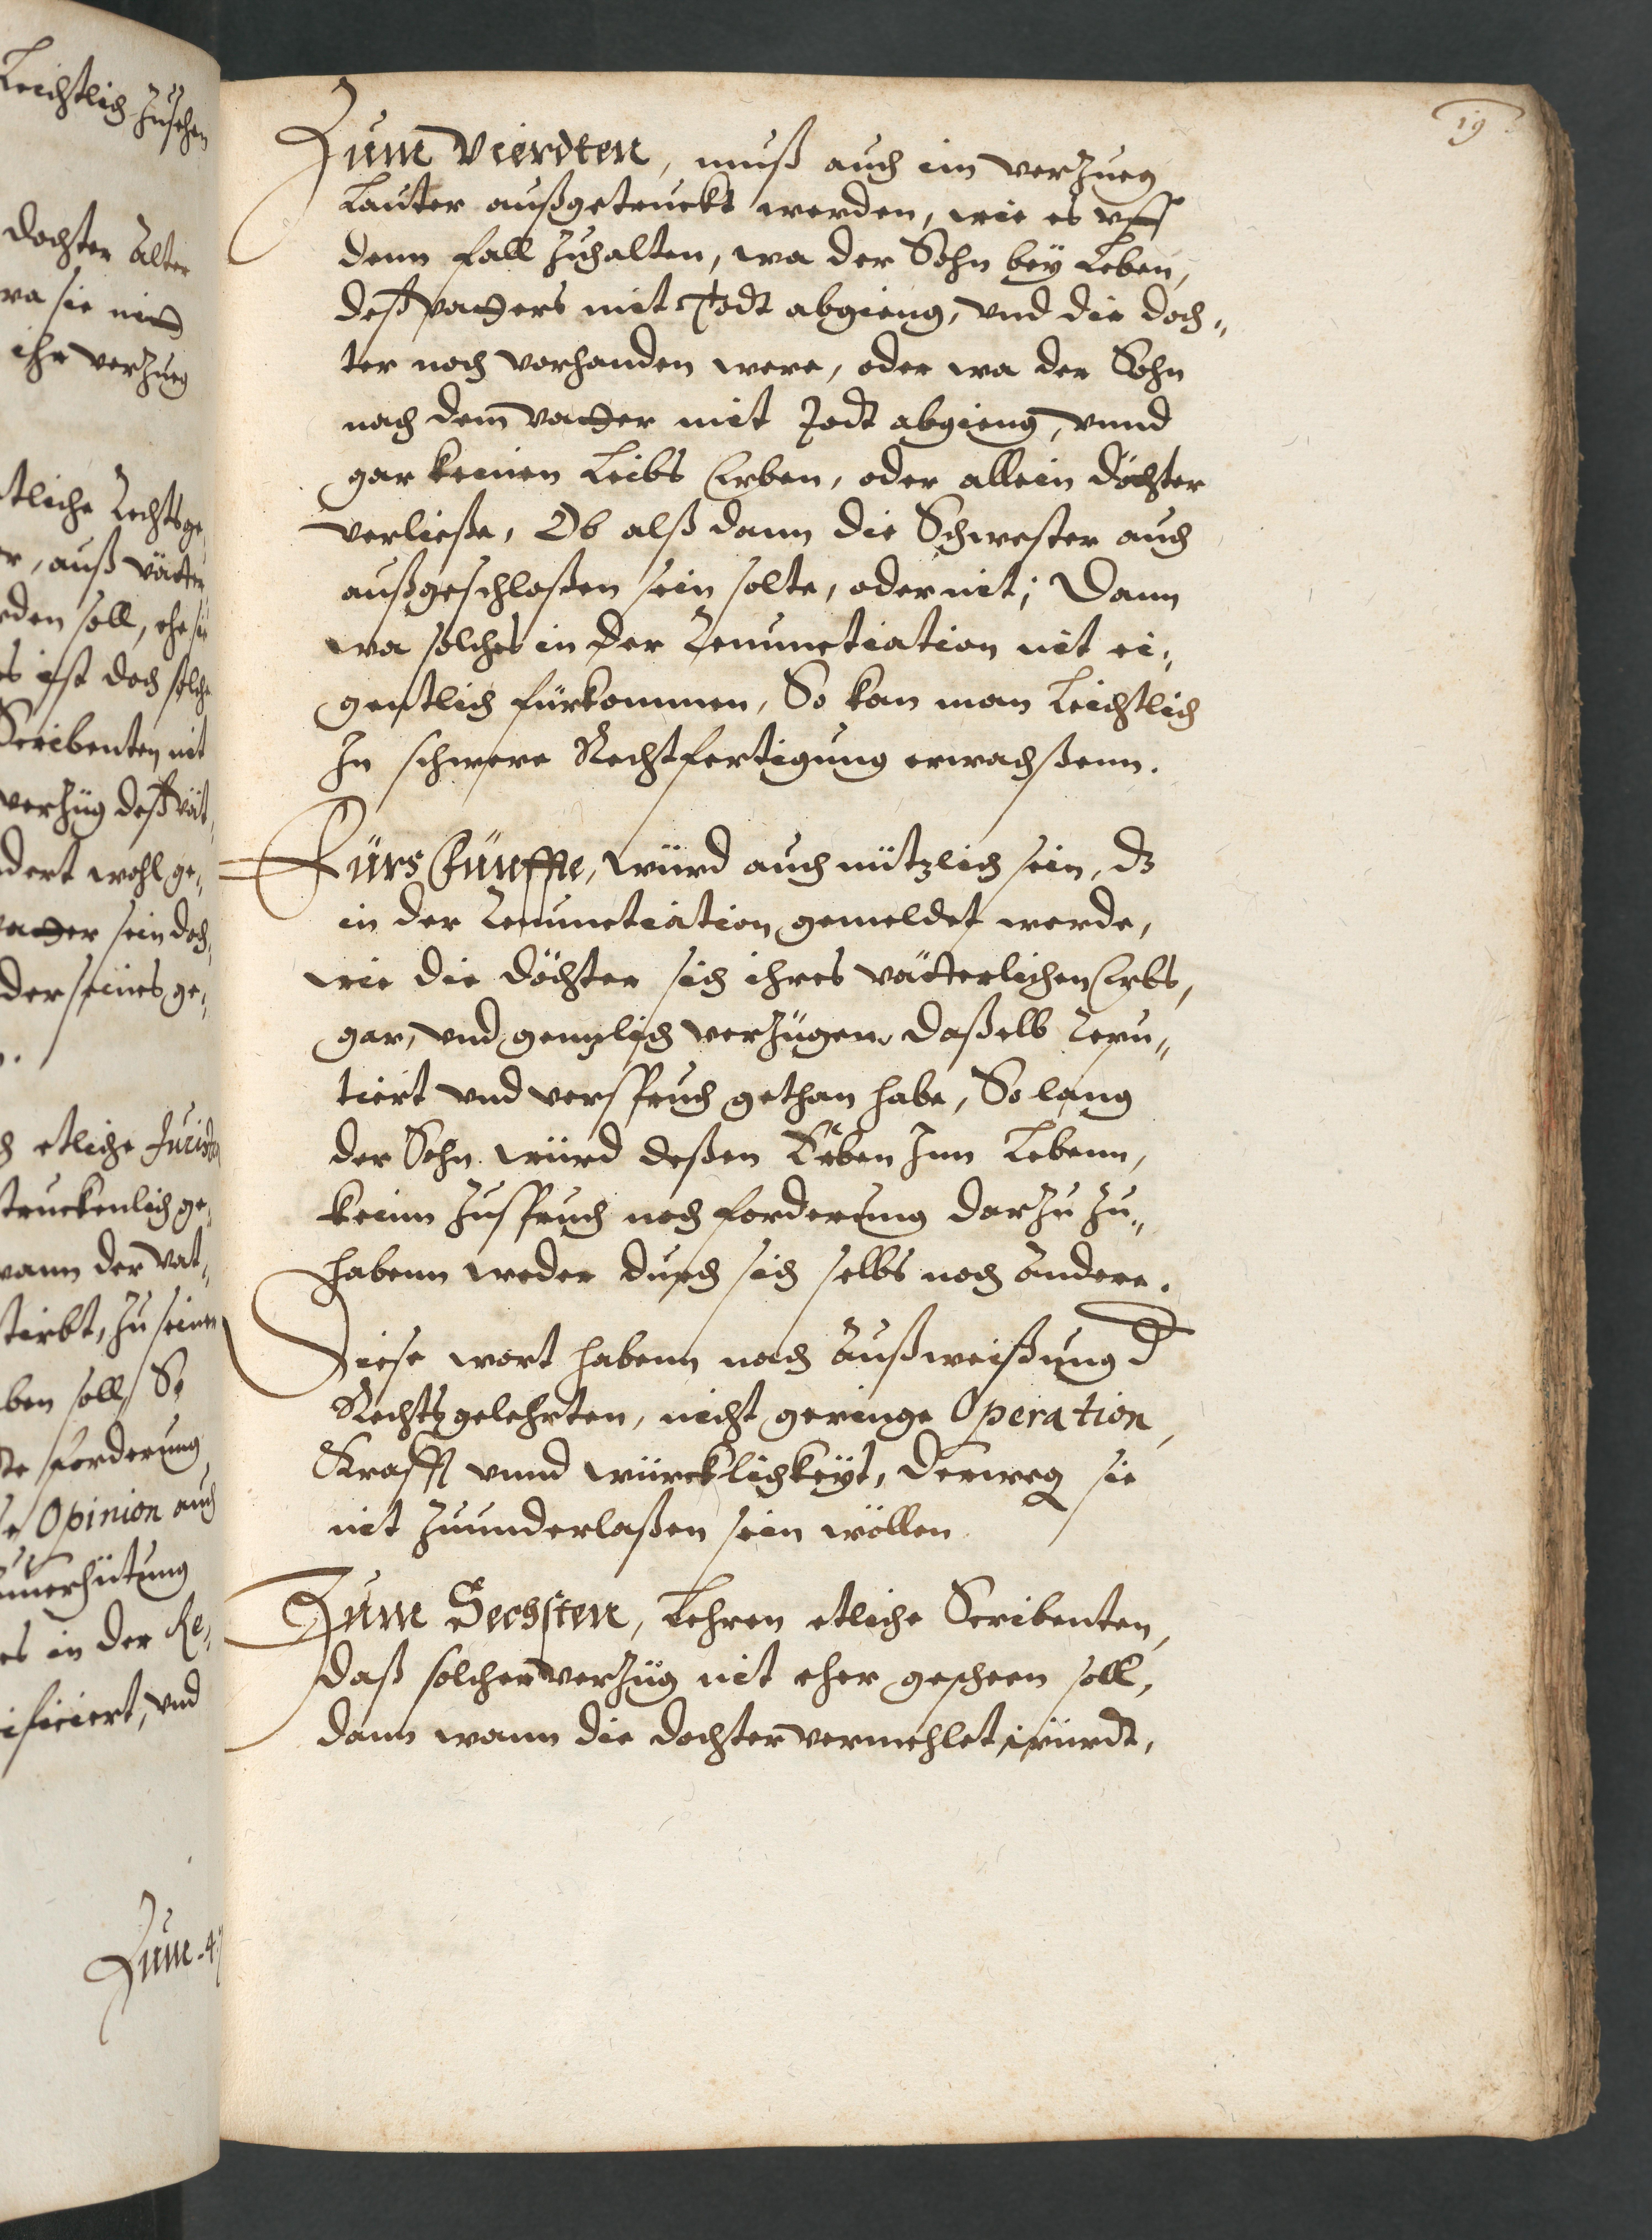 19
Zum Vierdten, muß auch im verzueg
Lauter außgetruckt werden, wie es vff
denn fall zuhalten, wa der Sohn bey Leben,
deß vatters mit Todt abgieng, vnd die doch„
ter noch vorhanden were, oder wa der Sohn
nach dem vatter mit Todt abgieng, vnnd
gar keinen Leibs Erben, oder allein döchter
verließe, Ob alß dann die Schwester auch
außgeschloßen sein solte, oder nit; Dann
wa solches in der Renunctiation nit ei„
gentlich fürkommen, So kan man Leichtlich
In schwere Rechtfertigung erwachßenn.
Fürs Fünffte, würd auch nützlich sein, dz
in der Renunctiation gemeldet werde,
wie die döchter sich ihres vätterlichen Erbs,
gar, vnd gentzlich verzügen, daßelb
tiert vnd verspruch gethan habe, So lang
der Sohn würd deßen Erben Inn Lebenn,
keinn Zuspruch noch forderung darzu zu„
habenn weder durch sich selbs noch andere.
Diese wort habenn nach außweißung d
Rechtsgelehrten, nicht geringe Operation,
Krafft vnnd würcklichkeyt, derweg sie
nit zuunderlaßen sein wöllen
Zum Sechsten, Lehren etliche Scribenten,
daß solcher verzüg nit eher gescheen soll,
dann wann die dochter vermehlet würdt,
Leichtlich zusehen
dochter Alter
wa sie nit
ihr verzueg
tliche Rechtsge
r, auß vätter
rden soll, ehe sie
es ist doch solche
Scribenten nit
verzüg deß vät
dert wohl ge„
vatter sein doch
der seines ge„
h etliche Juristen
truckenlich ge„
wann der vat„
tirbt, zu seinem
ben soll, So
te forderung
e Opinion auch
uerhütung
es in der Re„
ificiert, vnd
Zum 4